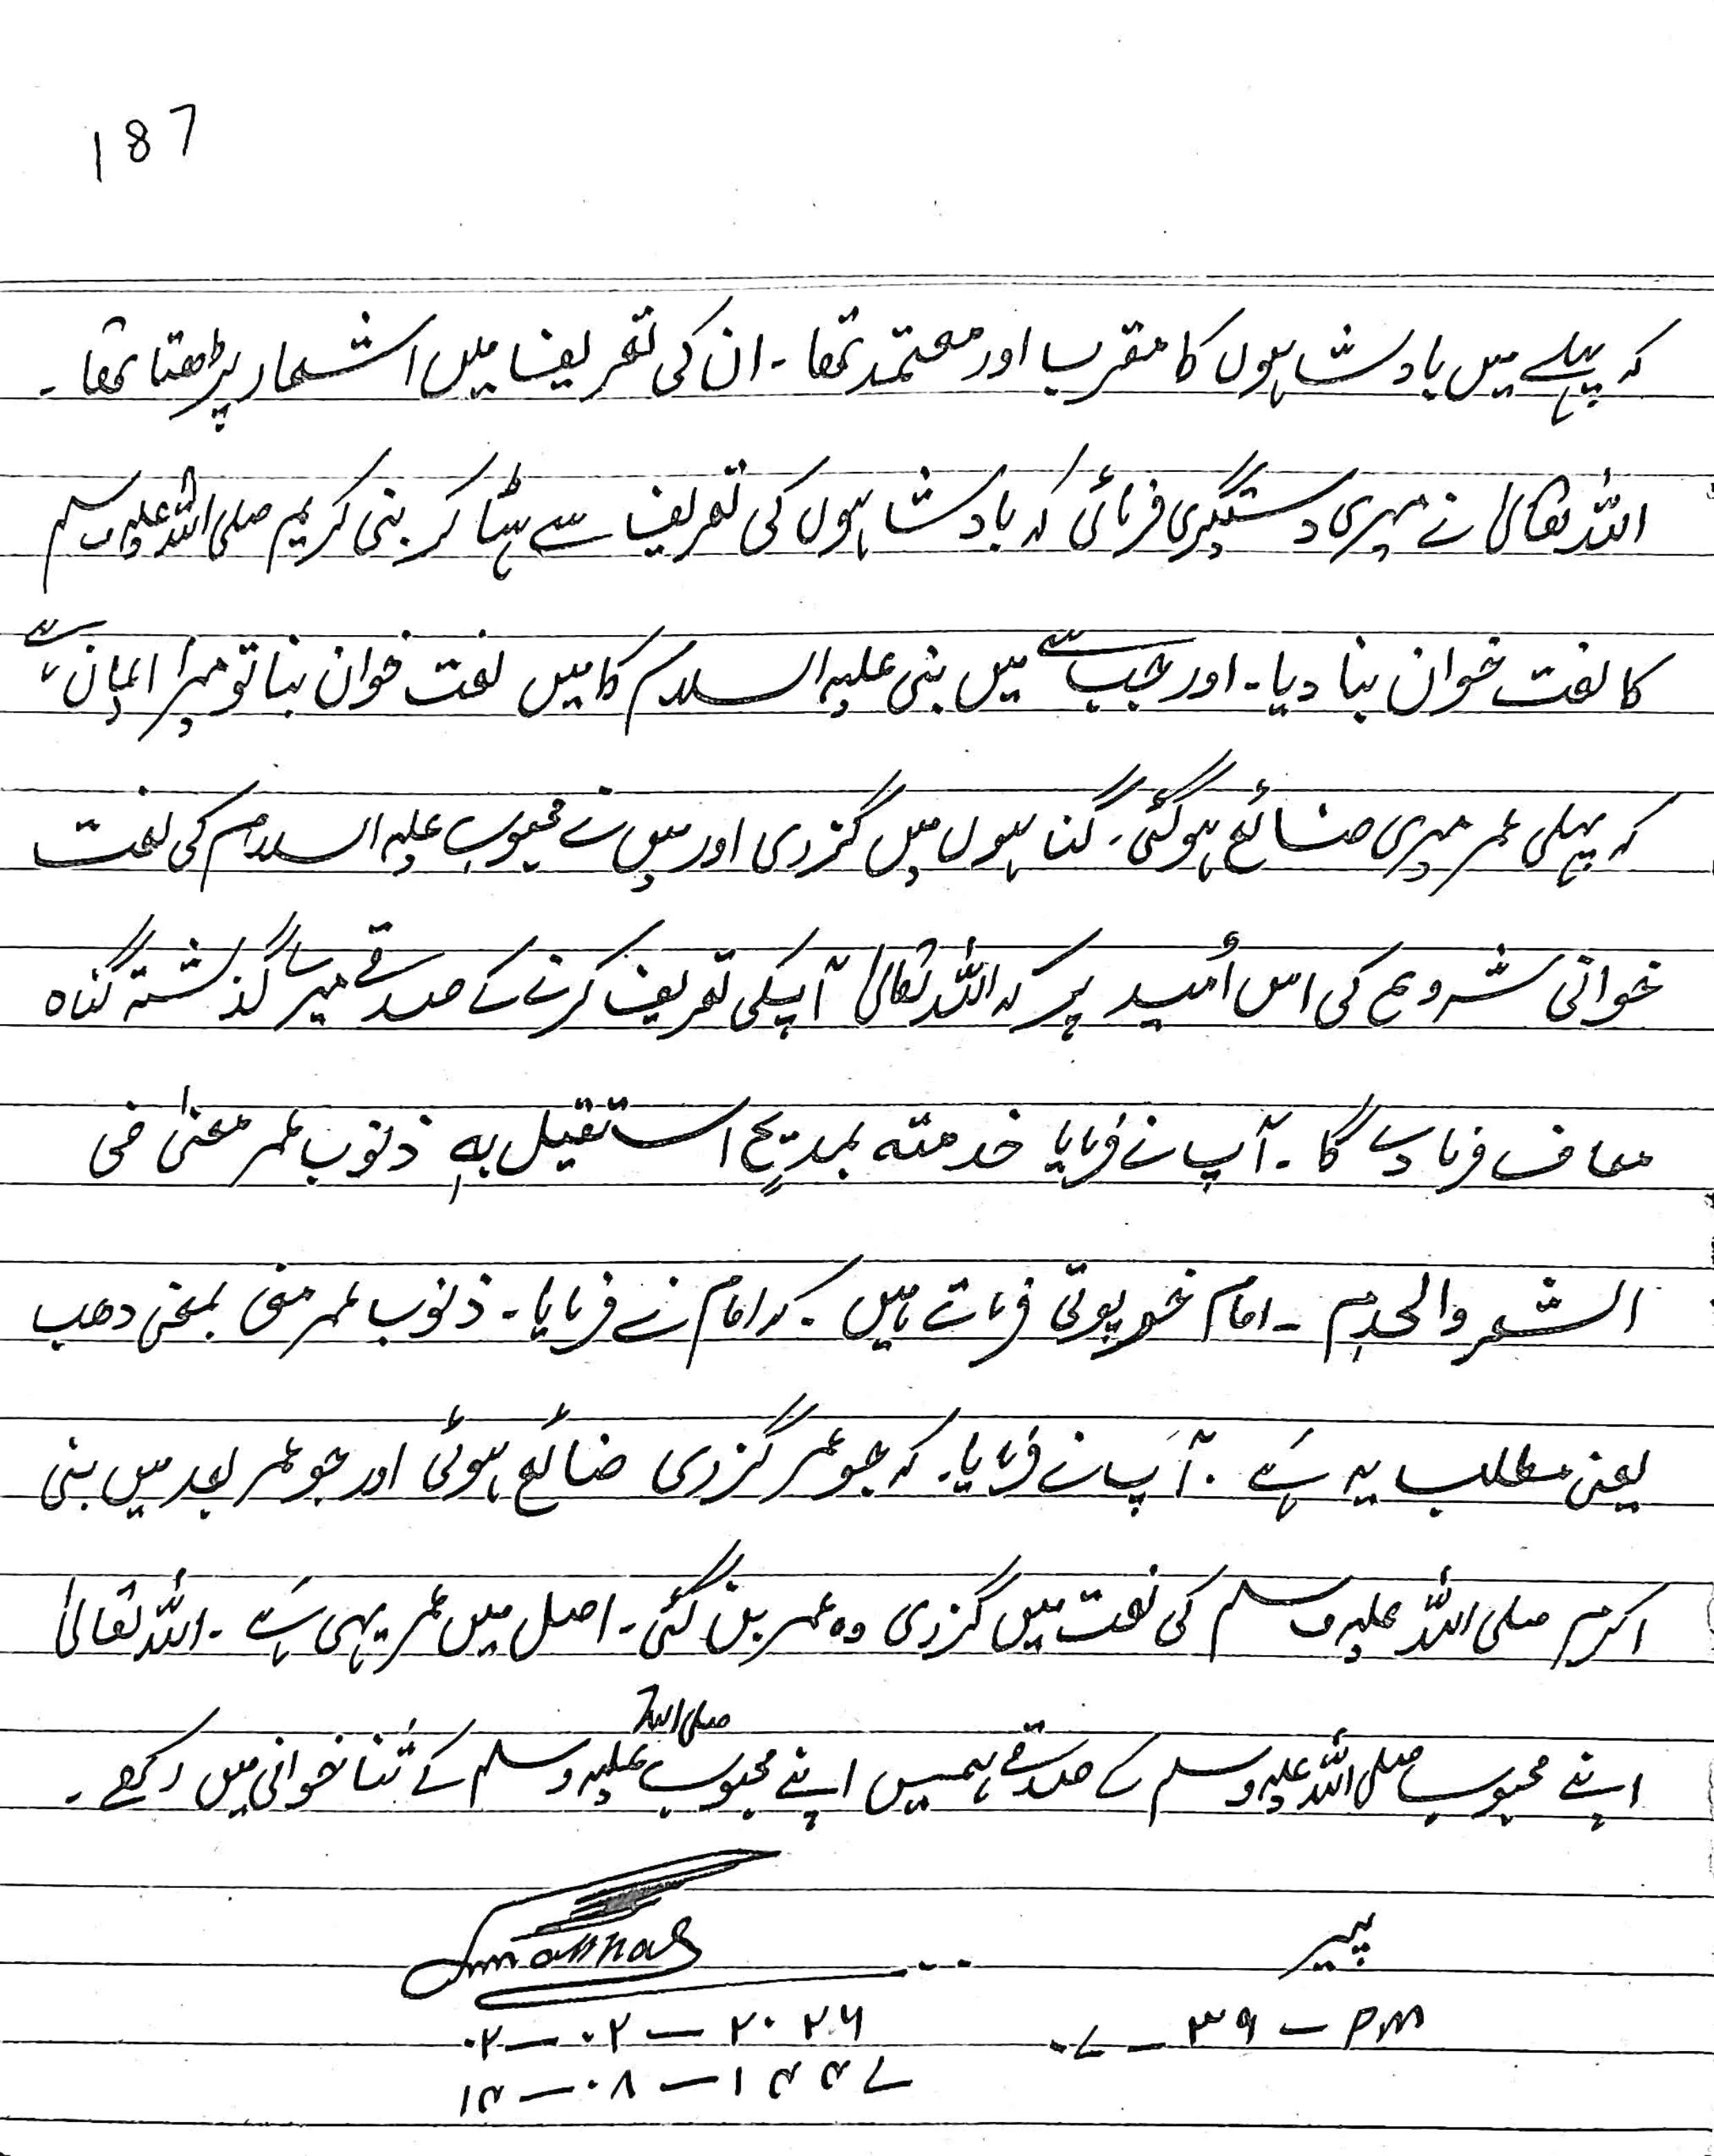 187
کہ پہلے میں بادشاہوں کا مقرب اور معتمد تھا۔ ان کی تعریف میں اشعار پڑھتا تھا۔
اللہ تعالیٰ نے میری دستگیری فرمائی کہ بادشاہوں کی تعریف سے ہٹا کر نبی کریم صلی اللہ علیہ وسلم
کا نعت خوان بنا دیا۔ اور جب سے میں نبی علیہ السلام کا میں نعت خوان بنا تو میرا ایمان ہے
کہ پہلی عمر میری ضائع ہوگئی۔ گناہوں میں گزری اور میں نے محبوب علیہ السلام کی نعت
خوانی شروع کی اس اُمید پر کہ اللہ تعالیٰ آپکی تعریف کرنے کے صدقے میرے گذشتہ گناہ
معاف فرما دے گا۔ آپ نے فرمایا خدمتہ بمدیحٍ استقیل بہٖ ذنوب عمر مغنیٰ فی
الشعر والخدم ۔ امام خرپوتی فرماتے ہیں ۔ کہ امام نے فرمایا۔ ذنوب عمر مغی بمعنی دھب
یعنی مطلب یہ ہے ۔ آپ نے فرمایا۔ کہ جو عمر گزری ضائع ہوئی اور جو عمر بعد میں نبی
اکرم صلی اللہ علیہ وسلم کی نعت میں گزری وہ عمر بن گئی۔ اصل میں عمر یہی ہے ۔ اللہ تعالیٰ
اپنے محبوب صلی اللہ علیہ وسلم کے صدقے ہمیں اپنے محبوب صلی اللہ علیہ وسلم کے ثنا خوانی میں رکھے ۔
پیر
۰۷ — ۳۹ — PM
۰۲ — ۰۲ — ۲۰۲۶
۱۴ — ۰۸ — ۱۴۴۷